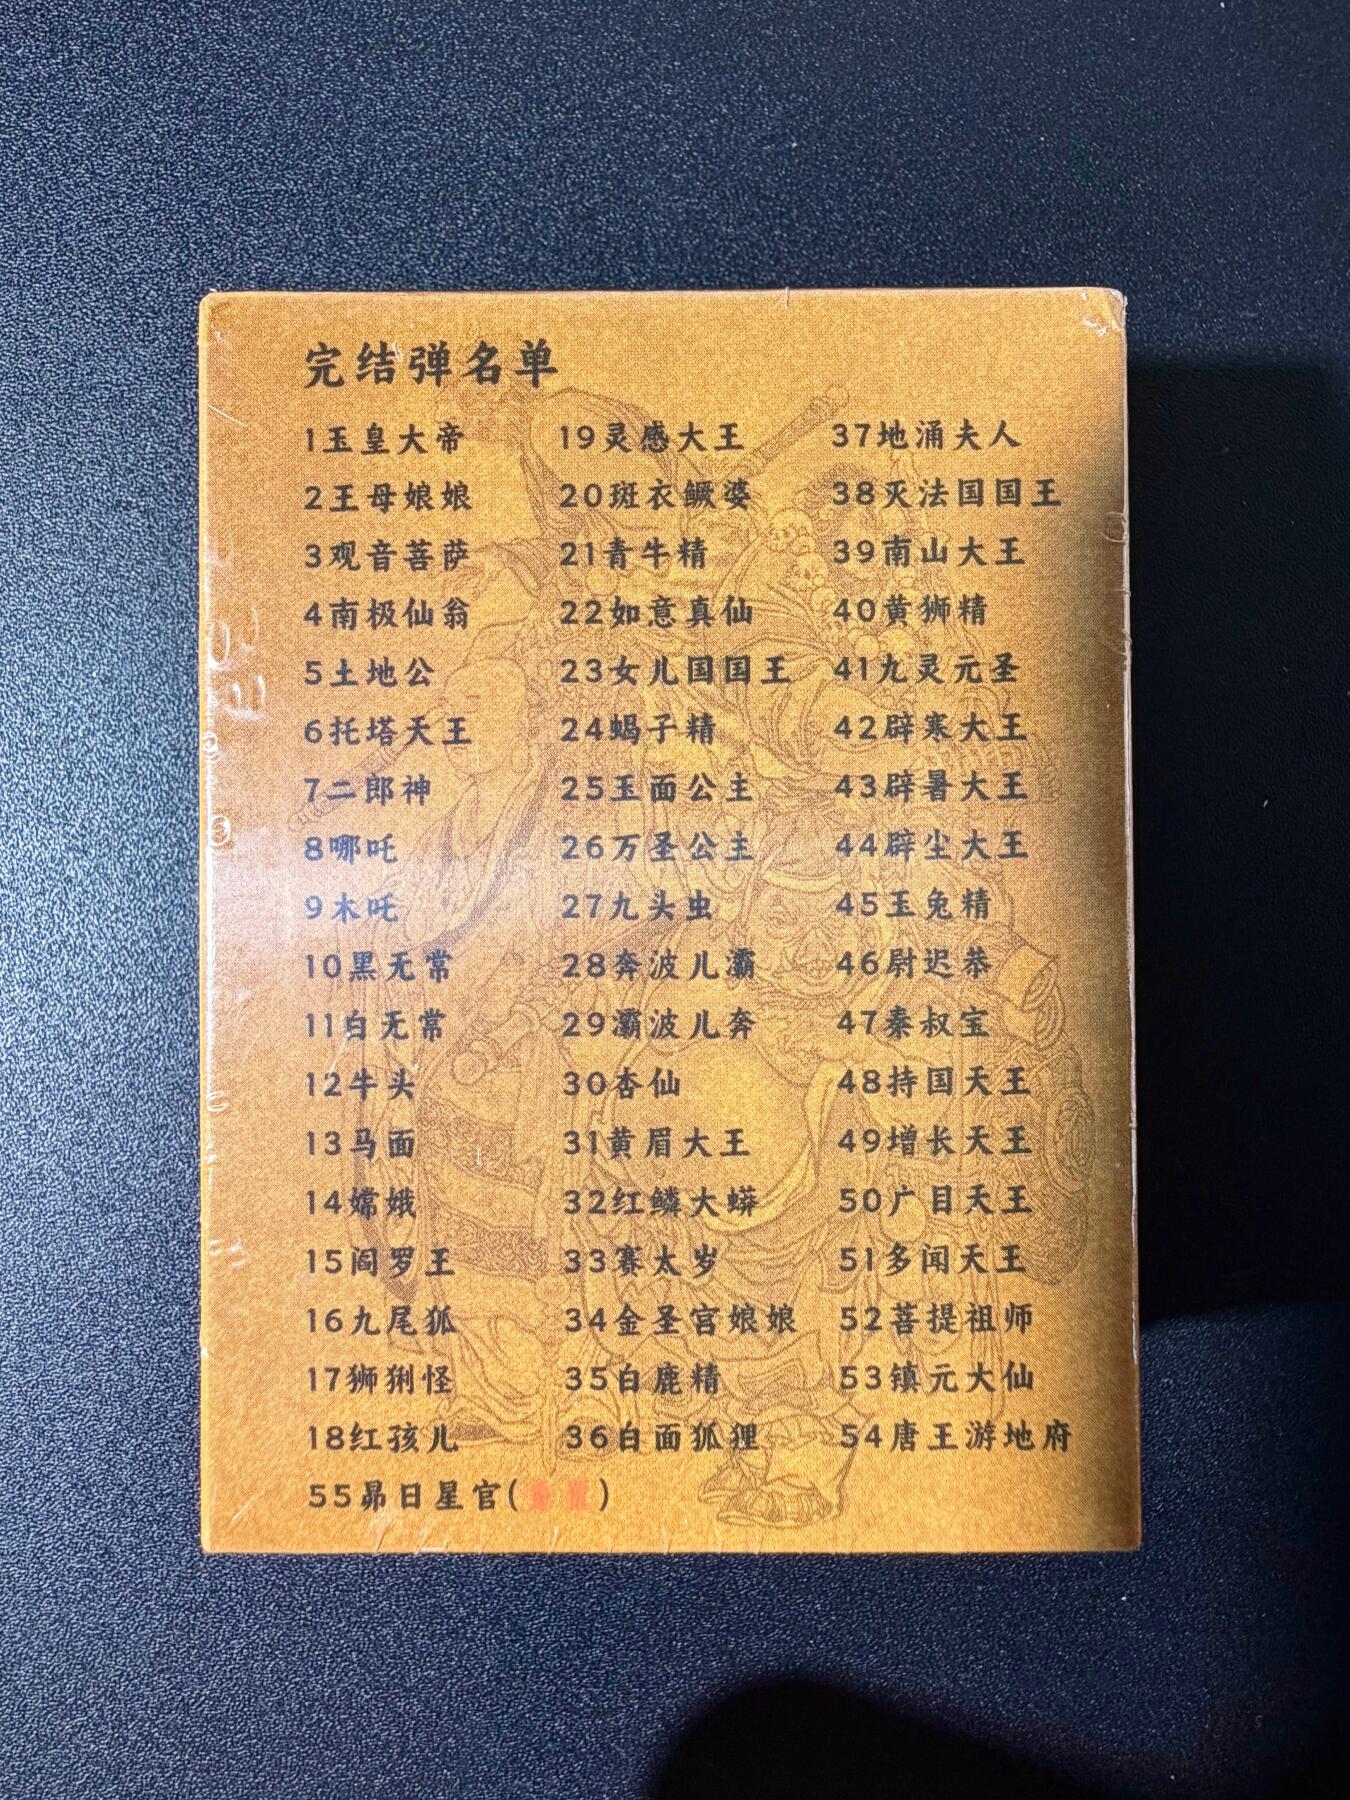 完结弹名单
1玉皇大帝 19灵感大王 37地涌夫人
2王母娘娘 20斑衣鳜婆 38灭法国国王
3观音菩萨 21青牛精 39南山大王
4南极仙翁 22如意真仙 40黄狮精
5土地公 23女儿国国王 41九灵元圣
6托塔天王 24蝎子精 42辟寒大王
7二郎神 25玉面公主 43辟暑大王
8哪吒 26万圣公主 44辟尘大王
9木吒 27九头虫 45玉兔精
10黑无常 28奔波儿灞 46尉迟恭
11白无常 29灞波儿奔 47秦叔宝
12牛头 30杏仙 48持国天王
13马面 31黄眉大王 49增长天王
14嫦娥 32红鳞大蟒 50广目天王
15阎罗王 33赛太岁 51多闻天王
16九尾狐 34金圣宫娘娘 52菩提祖师
17狮猁怪 35白鹿精 53镇元大仙
18红孩儿 36白面狐狸 54唐王游地府
55昴日星官( )